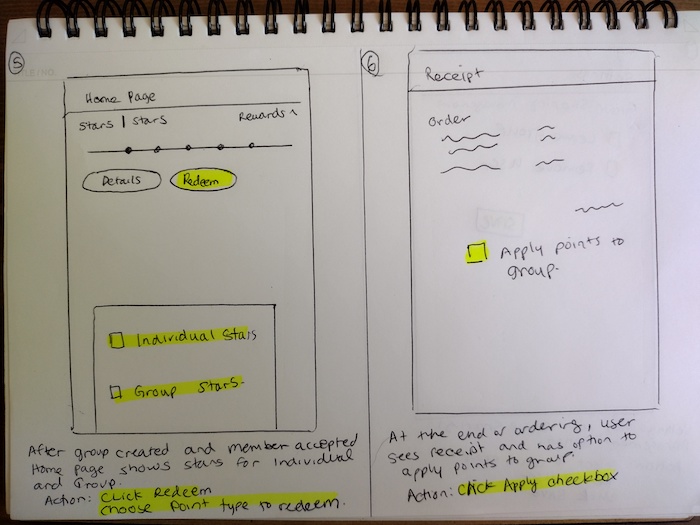 5
Home Page
Stars | Stars
Rewards ^
Details
Redeem
Individual Stars
Group Stars.
After group created and member accepted
Home page shows stars for Individual
and Group.
Action: Click Redeem
Choose Point type to redeem.
6
Receipt
Order
Apply points to
group.
At the end of ordering, user
sees receipt and has option to
apply points to group.
Action: Click Apply checkbox